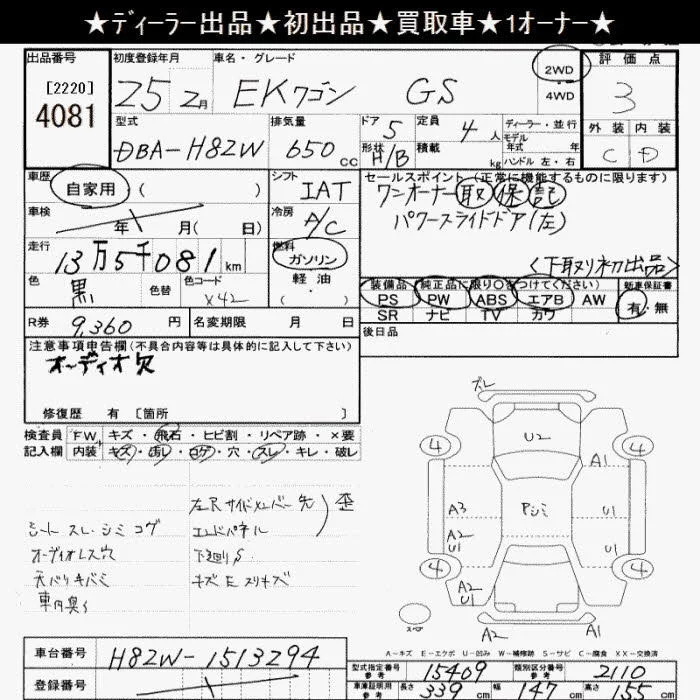 ★ディーラー出品★初出品★買取車★1オーナー★
出品番号 初度登録年月 車名・グレード 2WD 評価点
[2220] 4081 25 2月 EKワゴン GS 4WD 3
型式 排気量 ドア 5 定員 4人 ディーラー・並行 外装 内装
DBA-H82W 650cc 形状 H/B 積載 kg モデル年式 年式 ハンドル 左・右 C D
車歴 自家用 ( ) シフト IAT セールスポイント (正常に機能するものに限ります)
ワンオーナー 取 保 記
車検 年 月( 日) 冷房 A/C パワースライドドア(左)
走行 13万5千081km 燃料 ガソリン <下取り初出品>
色 黒 色替 色コード X42 軽油 ・( ・ )
装備品(純正品に限り○をつけてください) 新車保証書
PS PW ABS エアB AW 有・無
SR ナビ TV カワ
R券 9,360円 名変期限 月 日 後日品
注意事項申告欄(不具合内容等は具体的に記入して下さい)
オーディオ欠
修復歴 有 [箇所 ]
検査員 FW キズ・飛石・ヒビ割・リペア跡・×要
記入欄 内装 キズ・汚レ・コゲ・穴・スレ・キレ・破レ
左Rサイドメンバー先 歪
シート スレ シミ コゲ エンドパネル
オーディオレス穴 下廻りS
天バリキバミ キズEスリキズ
車内臭い
ズレ
U2
4 4
A1
A3 Pシミ U1
A2 U1 U1
4 4
A2 U1
A2 A1
スペア
A-キズ E-エクボ U-凹み W-補修跡 S-サビ C-腐食 XX-交換済
車台番号 H82W-1513294
登録番号
型式指定番号 参考 15409 類別区分番号 参考 2110
車庫証明用 参考 長さ 339cm 幅 147cm 高さ 155cm